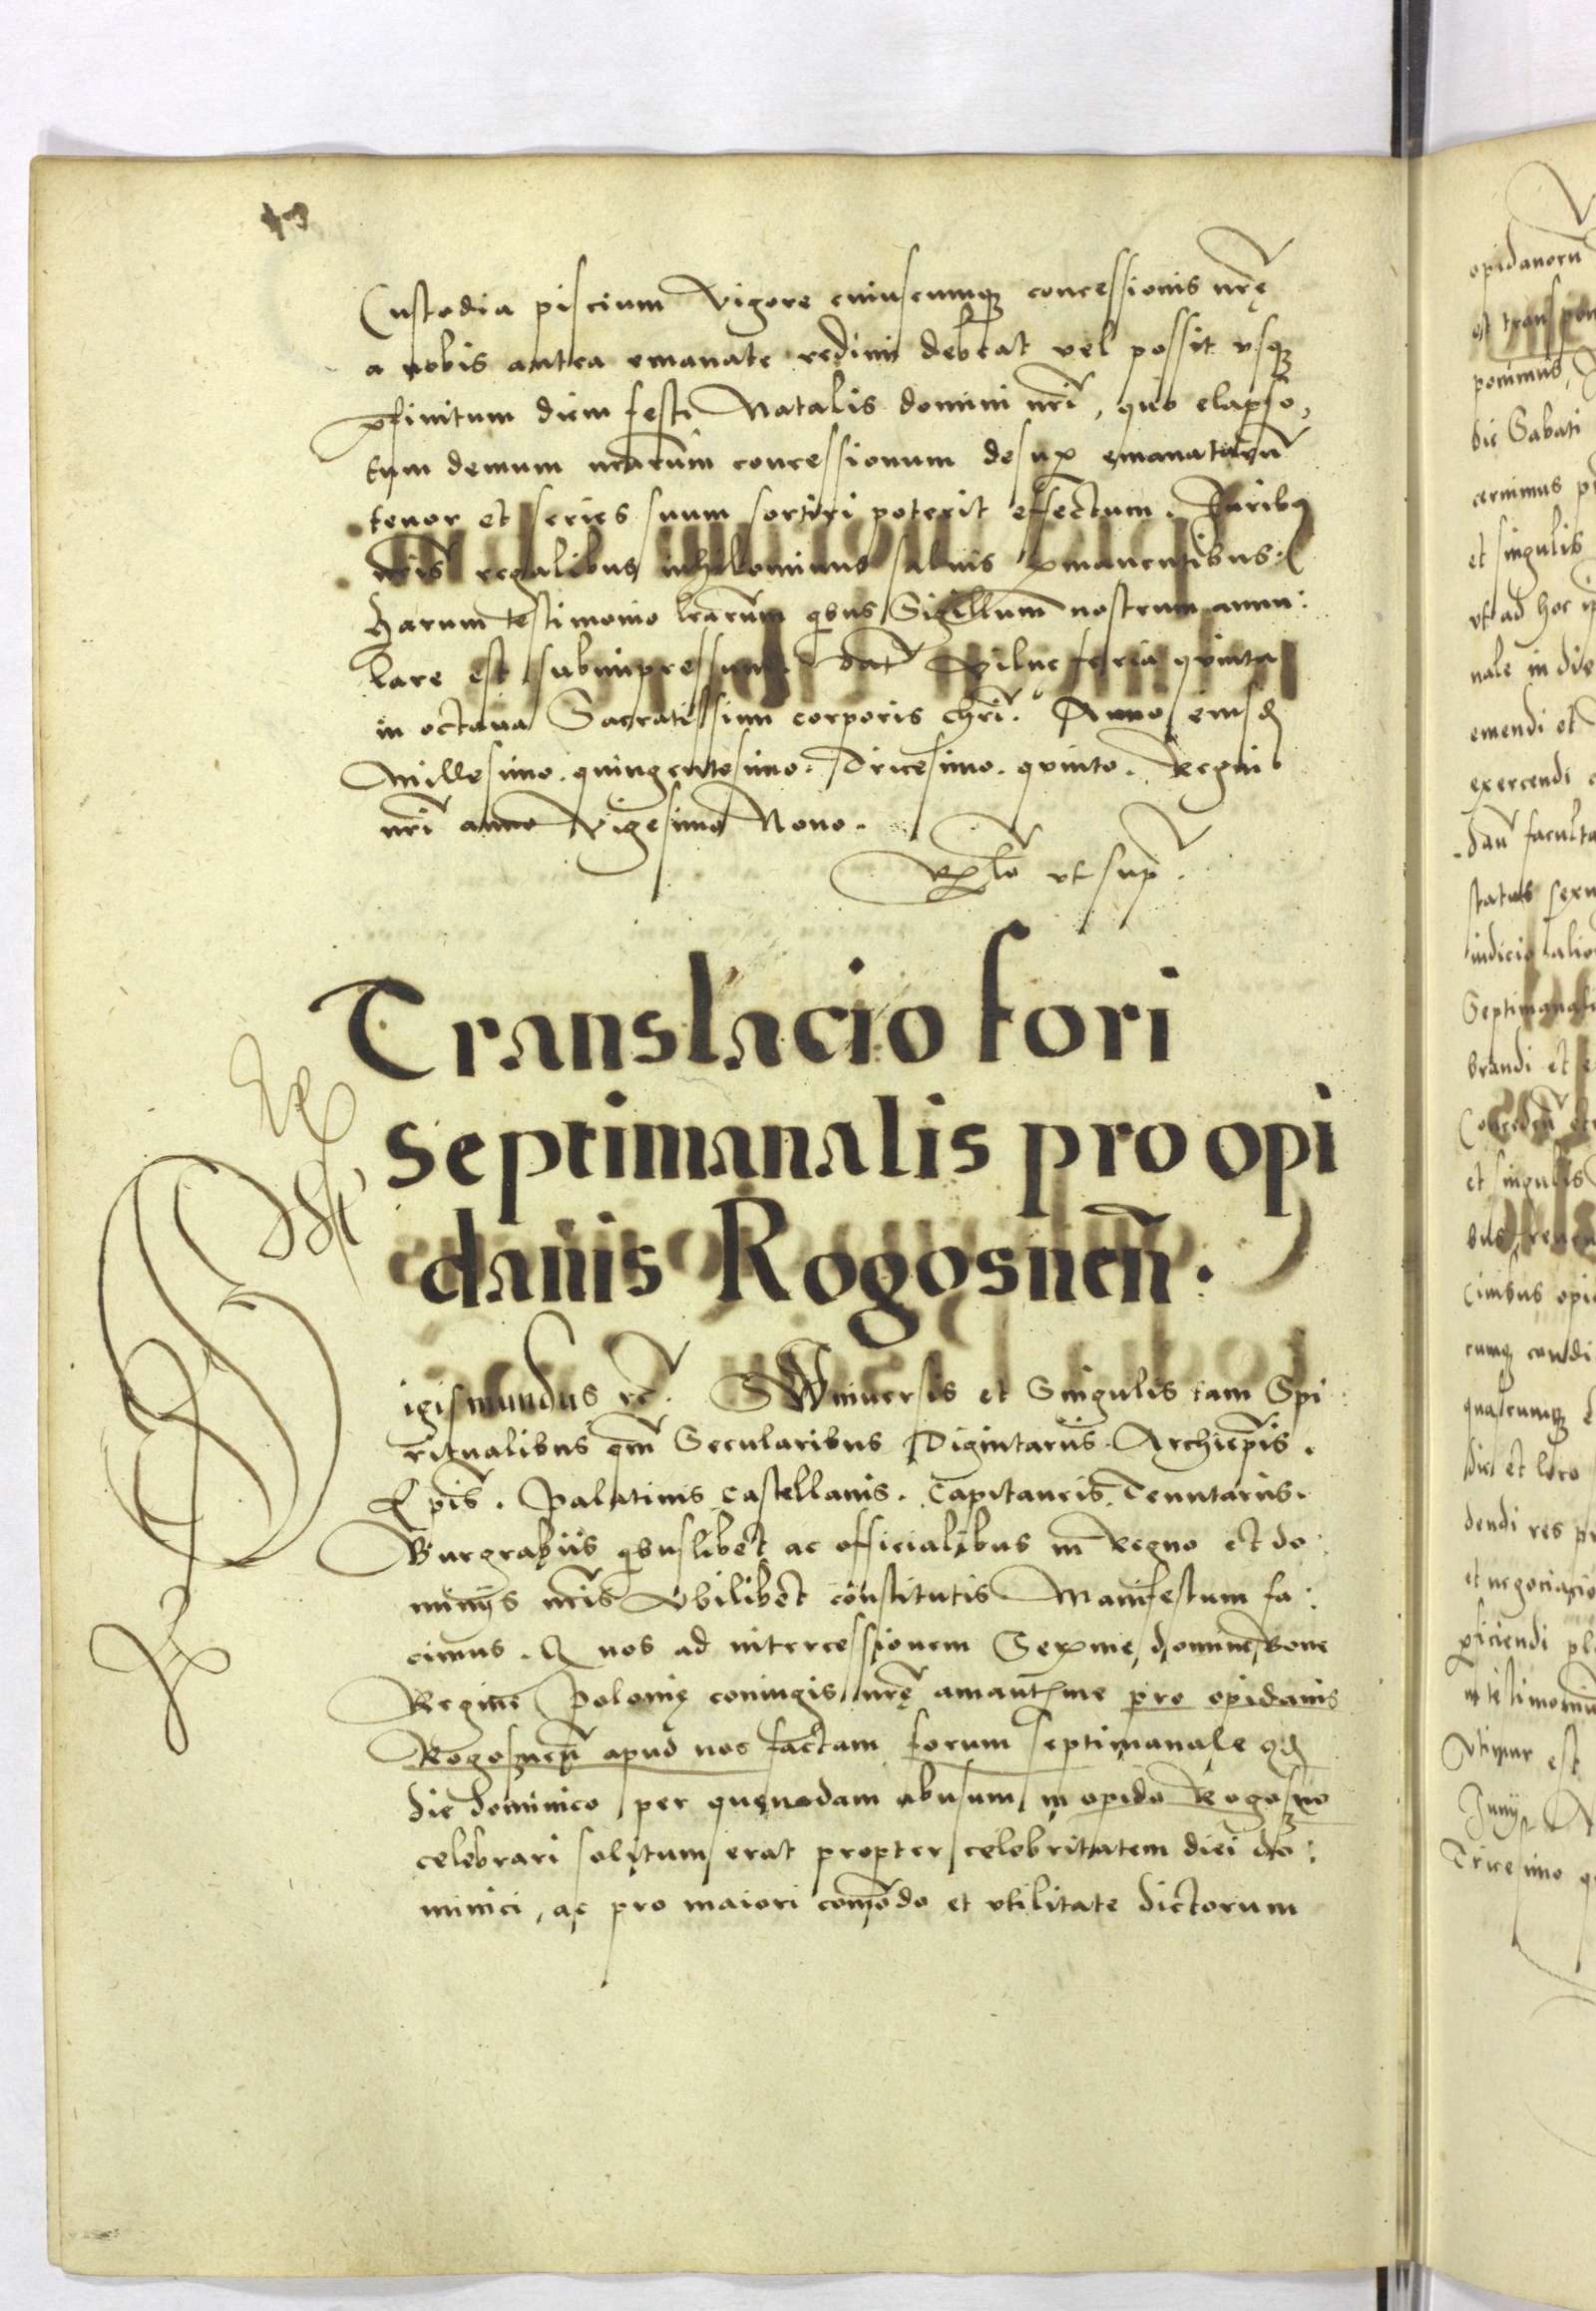 Custodia piscium vigore cuiuscumque concessionis nrę
a nobis antea emanate redimi debeat vel possit vsque
prefinitum diem festi Natalis domini nrī, quo elapso,
tum demum nrarum concessionum desuper emanatarū
tenor et series suum sortiri poterit effectum. Juribus
nris regalibus nihilominus saluis permanentibus.
harum testimonio lrarum quibus Sigillum nostrum annu:
lare est subimpressum. dat Vilnę feria quinta
in octaua Sacratissimi corporis chri. Anno eiusdem
Millesimo. quingentesimo. Tricesimo. quinto. Regni
nri anno Vigesimo Nono.
ut sup
Translacio fori
Septimanalis pro opi
danis Rogosnen̄.
Sigismundus rc. Vniuersis et Singulis tam Spi
ritualibus qm̄ Secularibus Dignitariis. Archiepis.
Epis. Palatinis Castellanis. Capitaneis Tenutariis.
Burgrabiis quibuslibet ac officialibus in Regno et do:
minijs nris Vbilibet constitutis Manifestum fa:
cimus. Quia nos ad intercessionem Serme domine Bone
Regine Polonię coniugis nrę amantme pro opidanis
Rogosznen̄ apud nos factam forum septimanale quod
die dominico per quendam abusum in opido Rogoszno
celebrari solitum erat propter celebritatem diei do:
minici, ac pro maiori comodo et vtilitate dictorum
opidanorū
ponimus
die Sabati
cernimus
et singulis
vt ad hoc
nale in die
emendi et
exercendi
status sexu
Septimanali
brandi et
et singulis
Ciuibus opi
die et loco
dendi res
et negociacio
testimoniu
est
Junij
Tricesimo